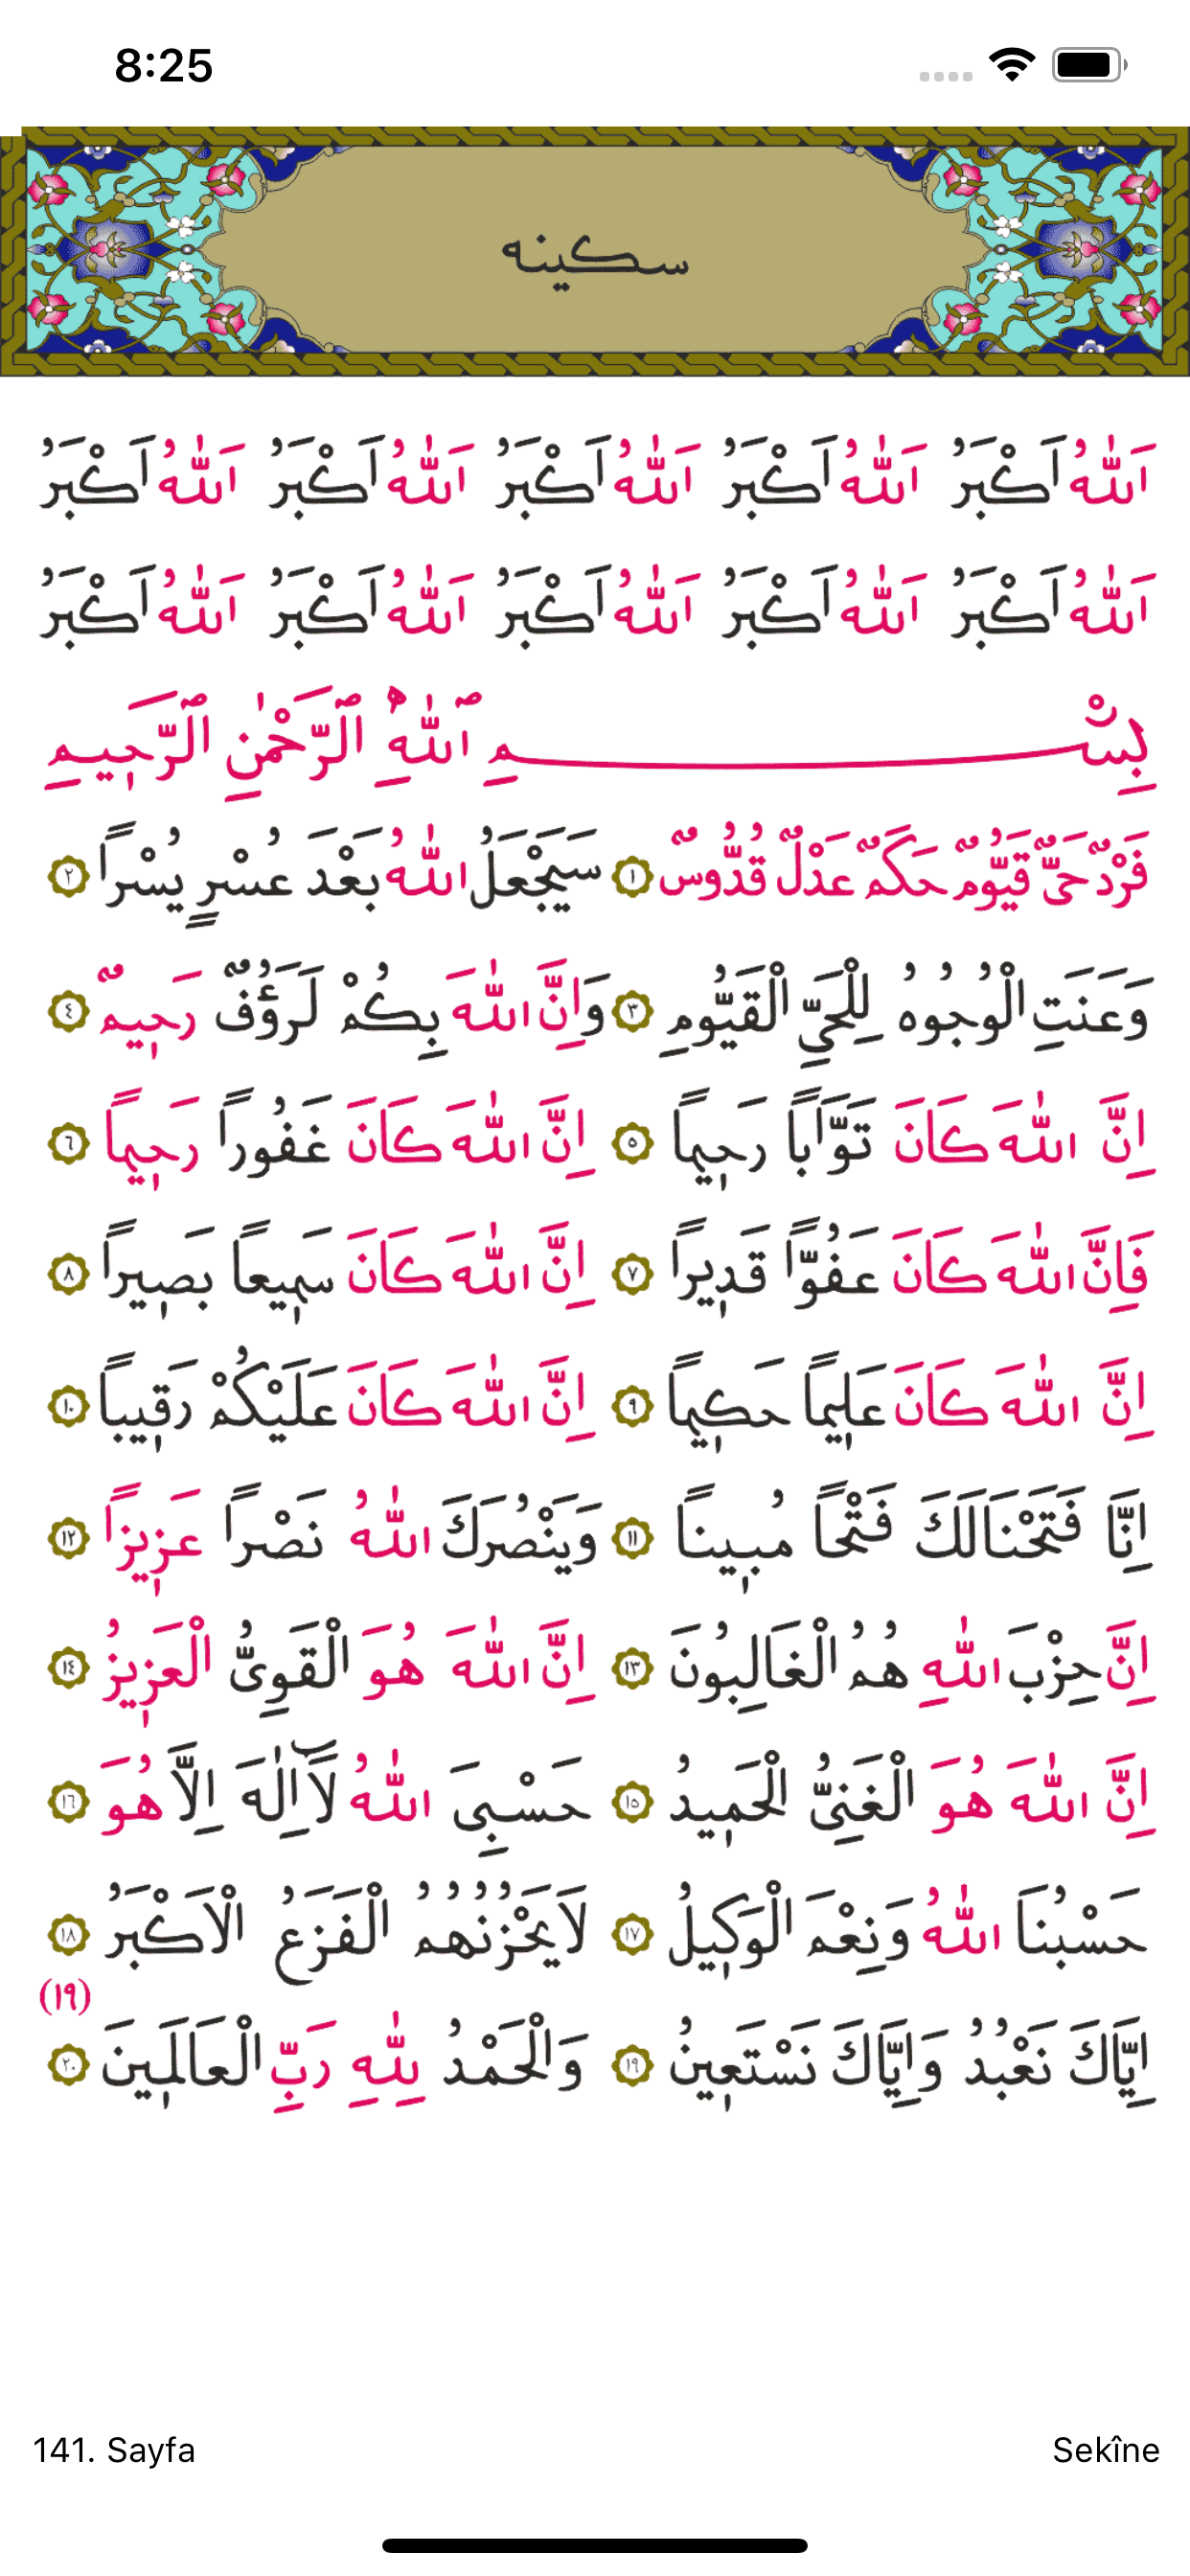 8:25
سكينه
اَللّٰهُ اَكْبَرُ اَللّٰهُ اَكْبَرُ اَللّٰهُ اَكْبَرُ اَللّٰهُ اَكْبَرُ اَللّٰهُ اَكْبَرُ
اَللّٰهُ اَكْبَرُ اَللّٰهُ اَكْبَرُ اَللّٰهُ اَكْبَرُ اَللّٰهُ اَكْبَرُ اَللّٰهُ اَكْبَرُ
بِسْمِ ٱللّٰهِ ٱلرَّحْمٰنِ ٱلرَّحِيمِ
فَرْدٌ حَىٌّ قَيُّومٌ حَكَمٌ عَدْلٌ قُدُّوسٌ ١ سَيَجْعَلُ اللّٰهُ بَعْدَ عُسْرٍ يُسْراً ٢
وَعَنَتِ الْوُجُوهُ لِلْحَيِّ الْقَيُّومِ ٣ وَاِنَّ اللّٰهَ بِكُمْ لَرَؤُفٌ رَحِيمٌ ٤
اِنَّ اللّٰهَ كَانَ تَوَّاباً رَحِيماً ٥ اِنَّ اللّٰهَ كَانَ غَفُوراً رَحِيماً ٦
فَاِنَّ اللّٰهَ كَانَ عَفُوًّا قَدِيراً ٧ اِنَّ اللّٰهَ كَانَ سَمِيعاً بَصِيراً ٨
اِنَّ اللّٰهَ كَانَ عَلِيماً حَكِيماً ٩ اِنَّ اللّٰهَ كَانَ عَلَيْكُمْ رَقِيباً ١٠
اِنَّا فَتَحْنَا لَكَ فَتْحاً مُبِيناً ١١ وَيَنْصُرَكَ اللّٰهُ نَصْراً عَزِيزاً ١٢
اِنَّ حِزْبَ اللّٰهِ هُمُ الْغَالِبُونَ ١٣ اِنَّ اللّٰهَ هُوَ الْقَوِىُّ الْعَزِيزُ ١٤
اِنَّ اللّٰهَ هُوَ الْغَنِىُّ الْحَمِيدُ ١٥ حَسْبِىَ اللّٰهُ لَٓا اِلٰهَ اِلَّا هُوَ ١٦
حَسْبُنَا اللّٰهُ وَنِعْمَ الْوَكِيلُ ١٧ لَا يَحْزُنُهُمُ الْفَزَعُ الْاَكْبَرُ ١٨
(١٩)
اِيَّاكَ نَعْبُدُ وَاِيَّاكَ نَسْتَعِينُ ١٩ وَالْحَمْدُ لِلّٰهِ رَبِّ الْعَالَمِينَ ٢٠
141. Sayfa
Sekîne